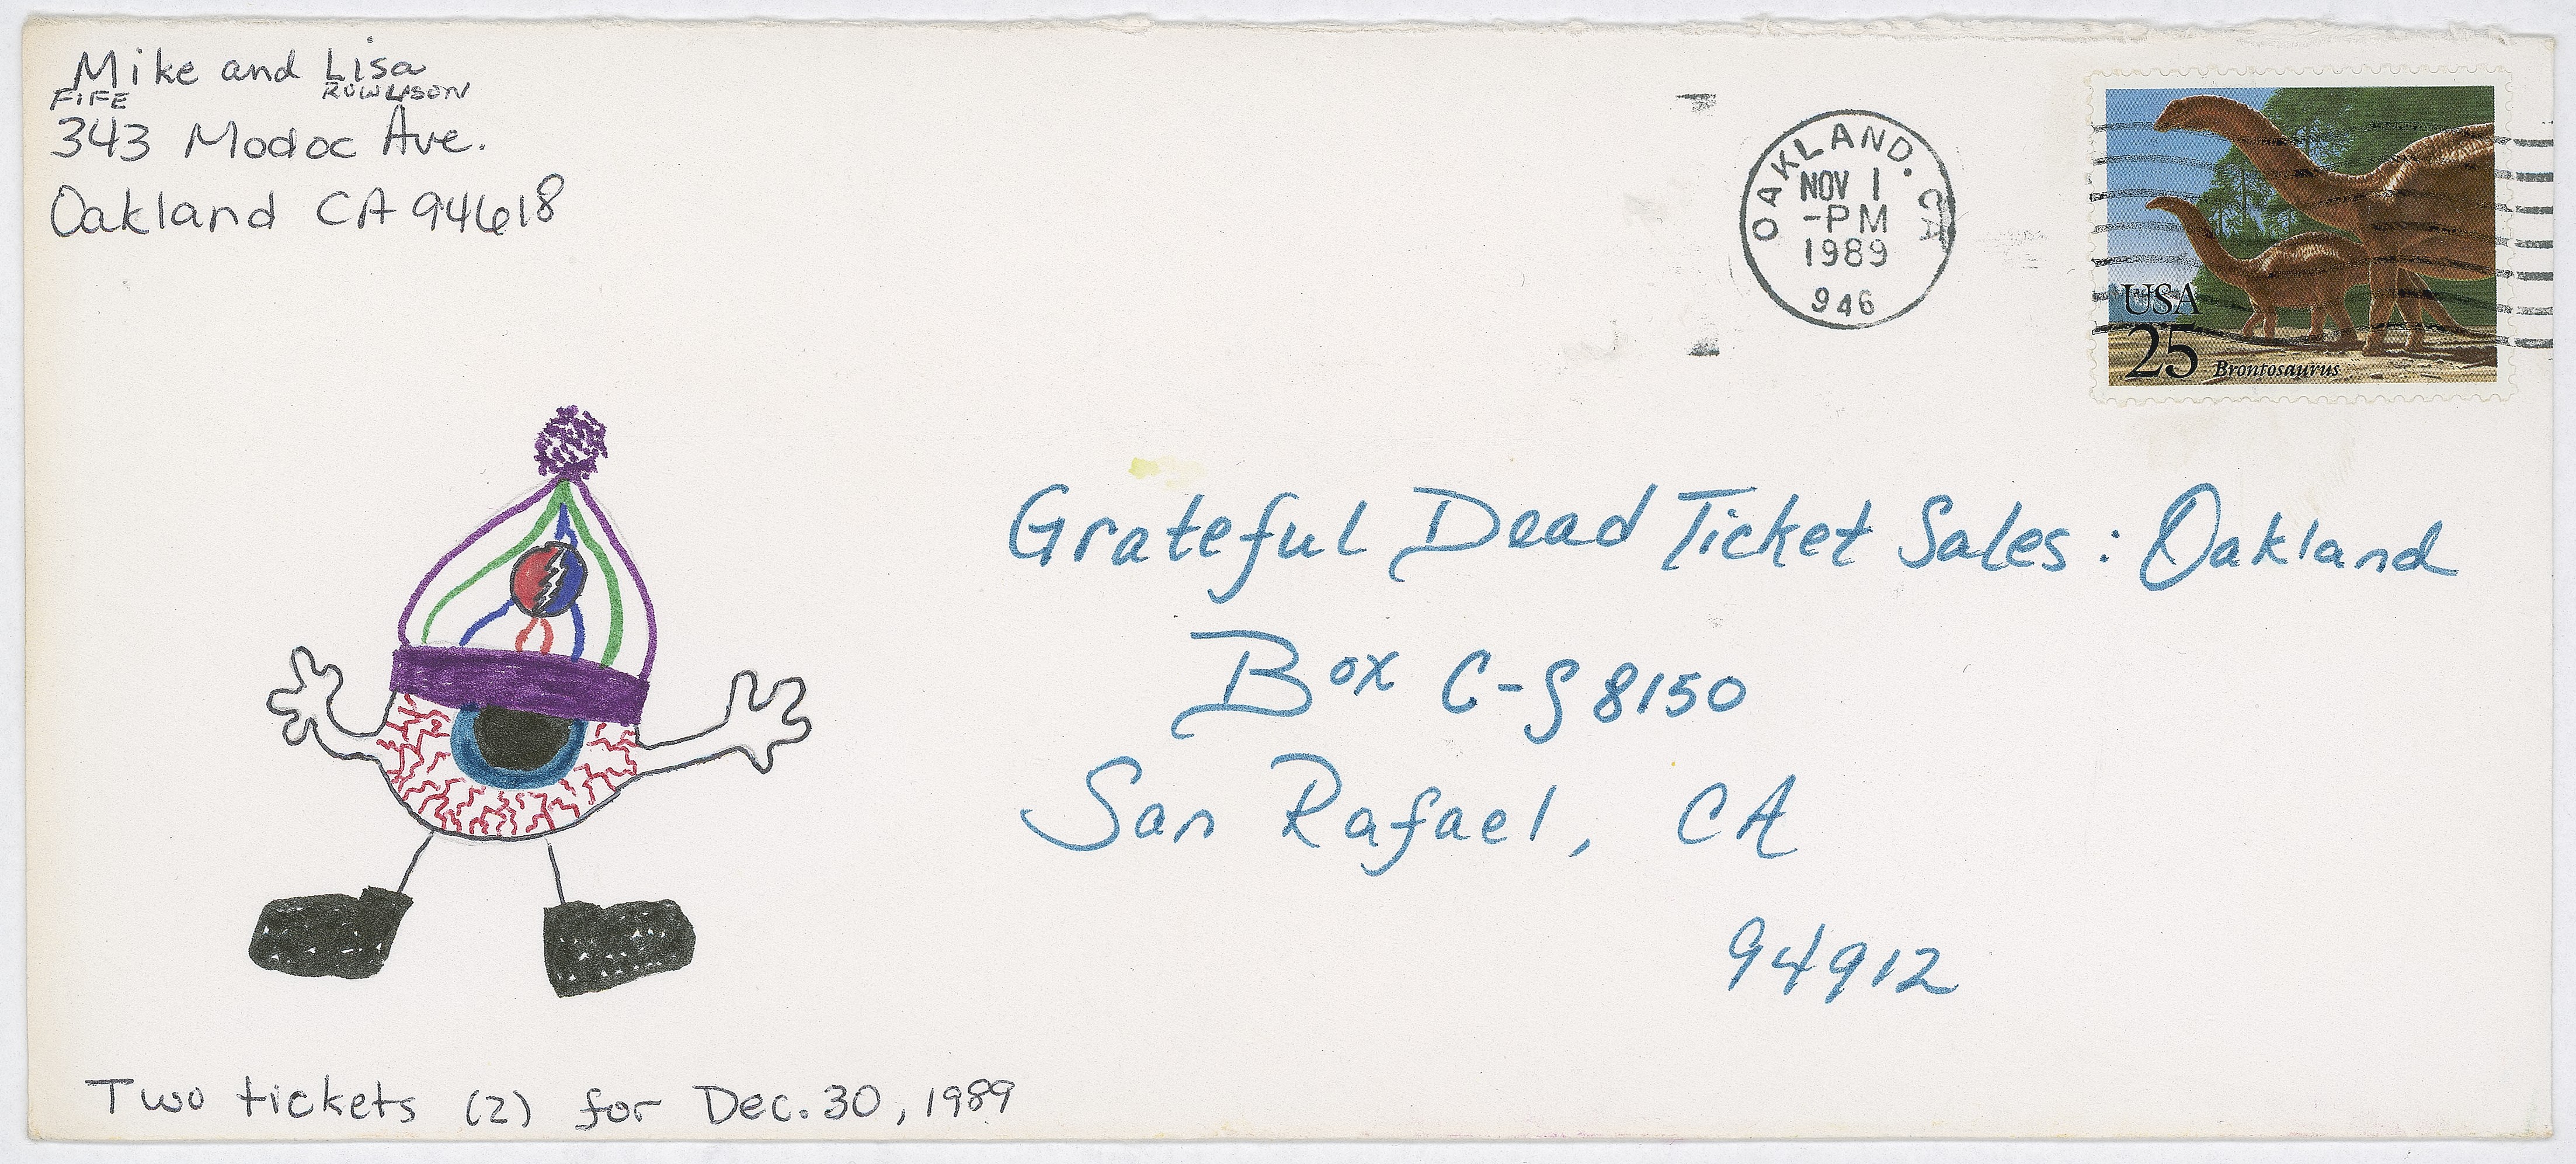 Mike and Lisa
FIFE ROWLISON
343 Modoc Ave.
Oakland CA 94618
OAKLAND. CA
NOV 1
-PM
1989
946
USA
25 Brontosaurus
Grateful Dead Ticket Sales: Oakland
Box C-S 8150
San Rafael, CA
94912
Two tickets (2) for Dec. 30, 1989